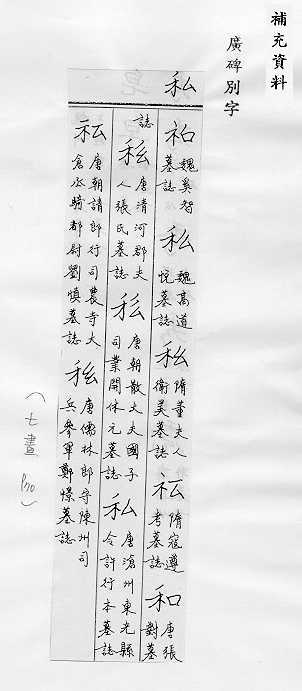 補充資料
廣碑別字
私
魏奚智墓誌
私 魏高道悅墓誌
私 隋董夫人衛美墓誌
隋寇遵考墓誌
和 唐張對墓誌
唐清河郡夫人張氏墓誌
唐朝散大夫國子司業開休元墓誌
私 唐滄州東光縣令許行本墓誌
唐朝請郎行司農寺大倉丞騎都尉劉慎墓誌
唐儒林郎守陳州司兵參軍鄭憬墓誌
(七畫 P70)